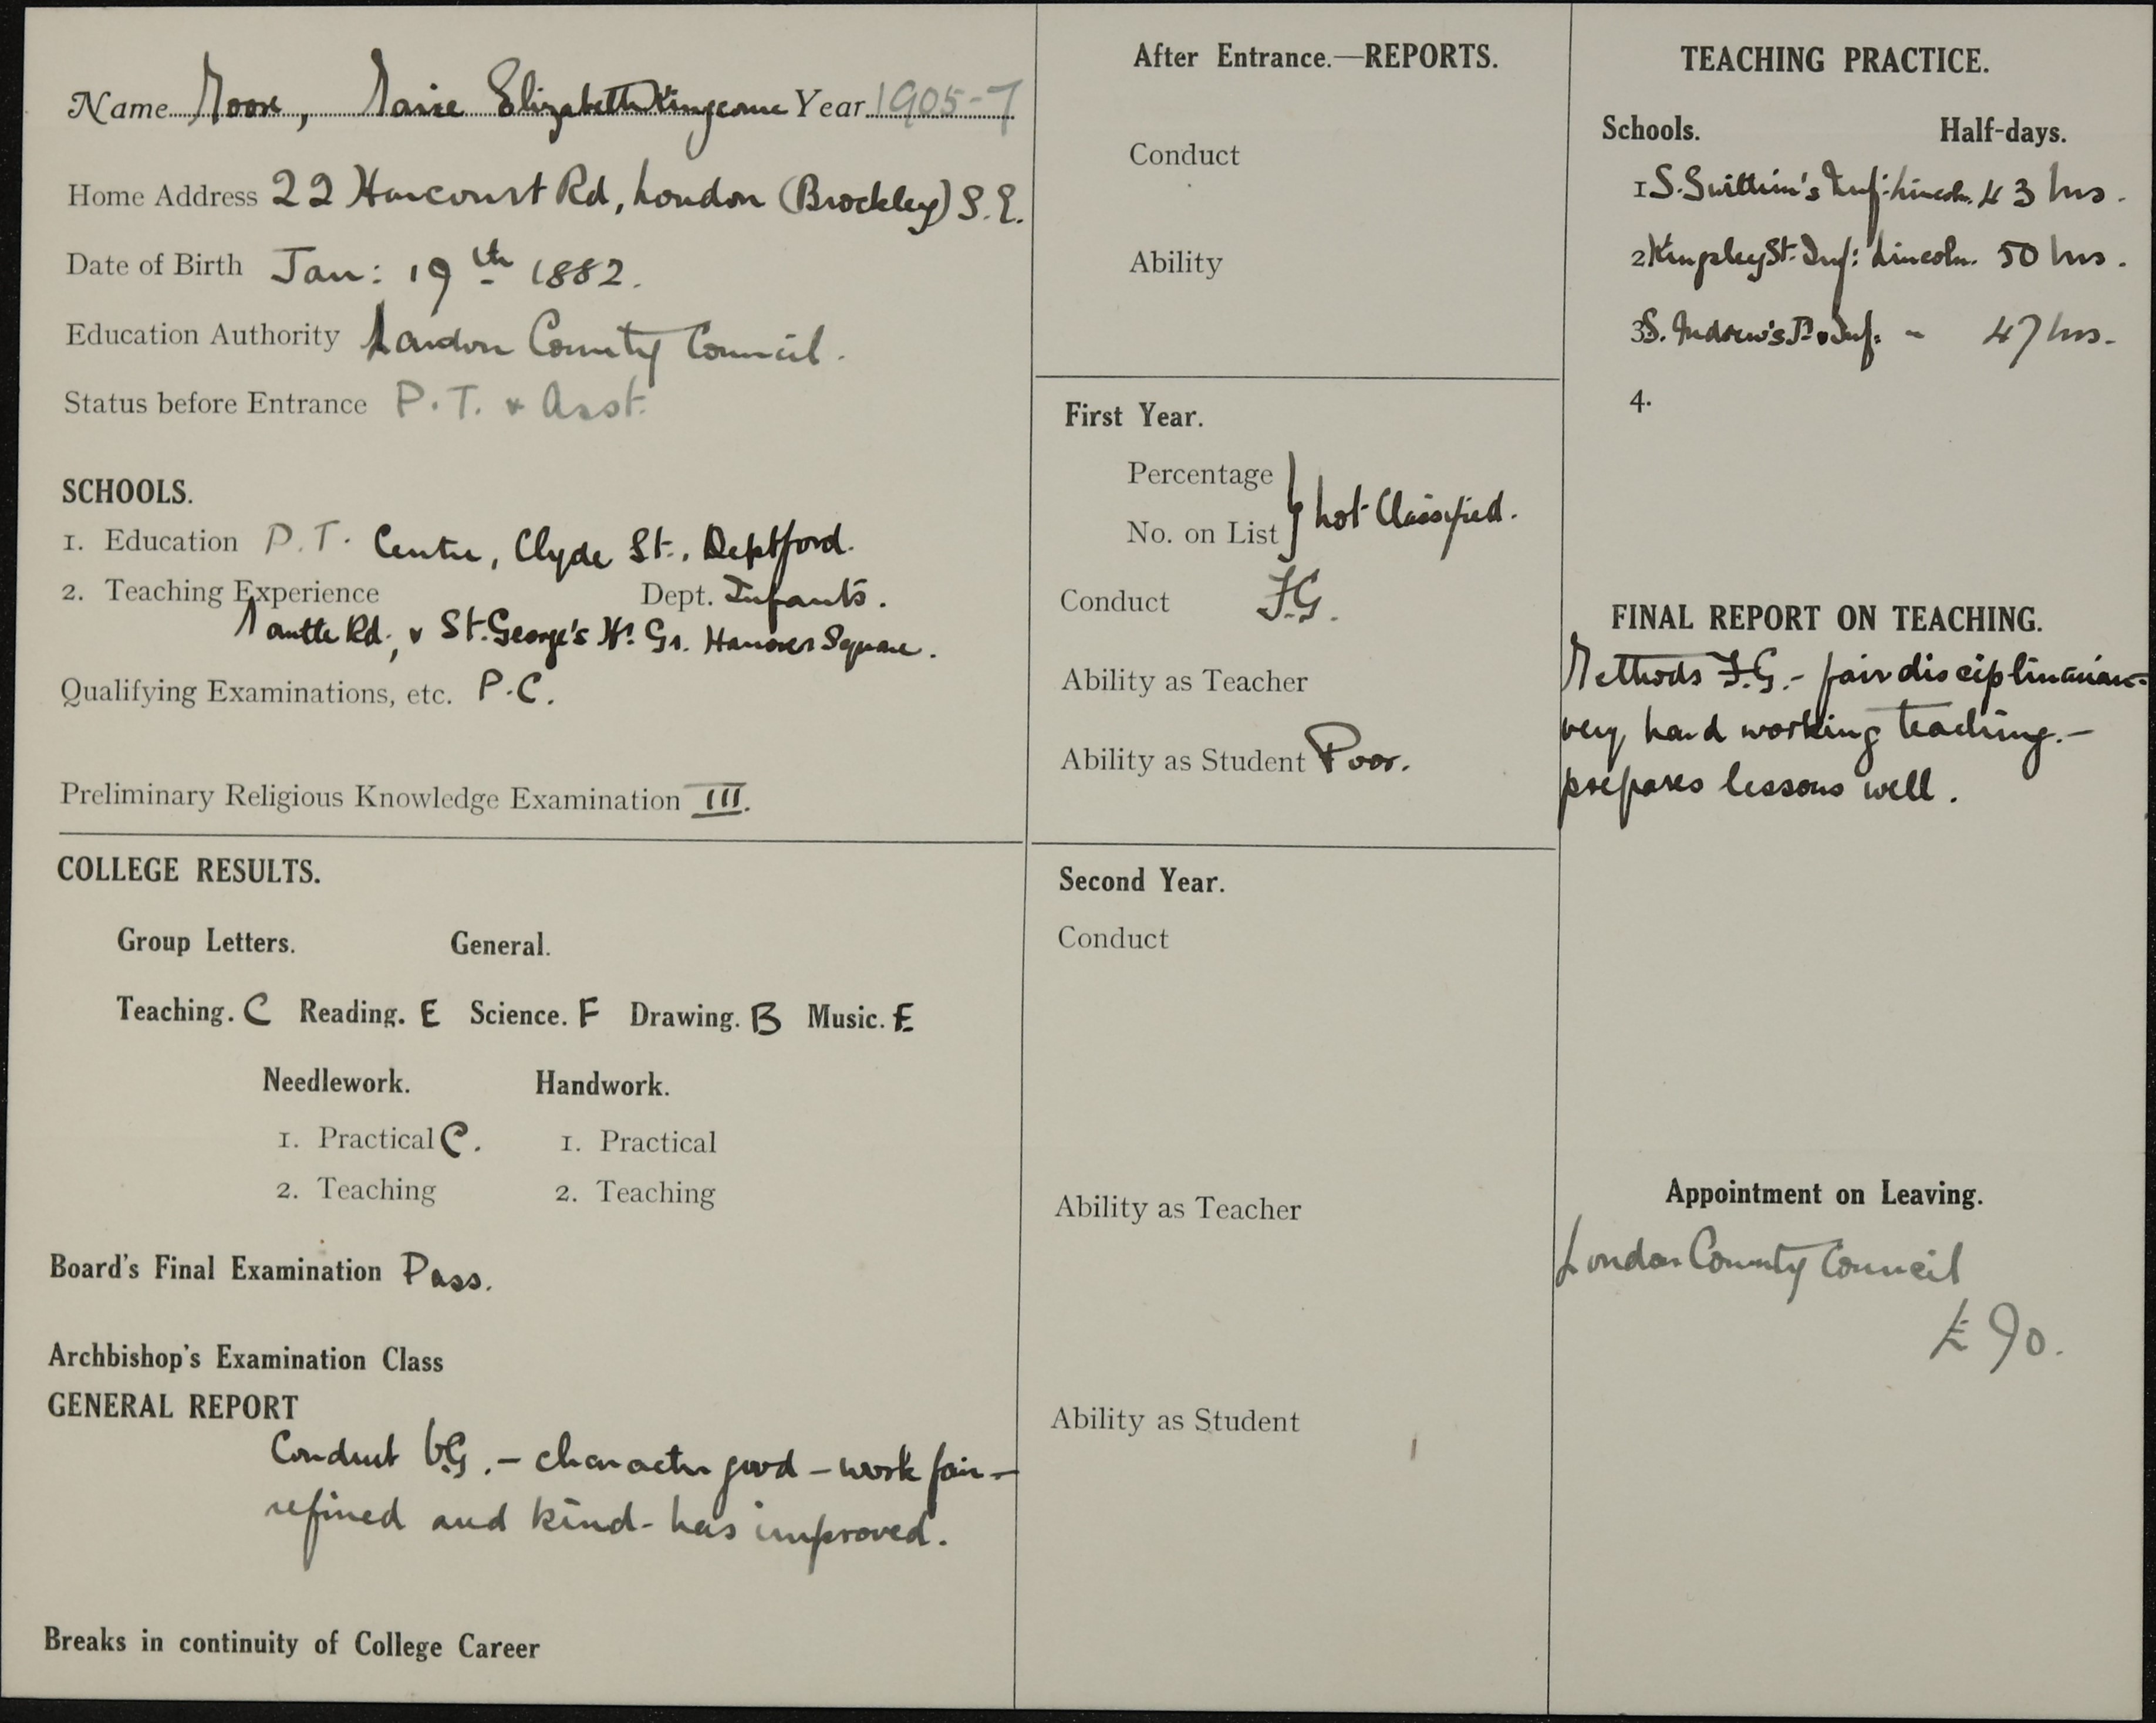 Name Moore, Marie Elizabeth Kingcome Year 1905-7
Home Address 22 Harcourt Rd, London (Brockley) S.E.
Date of Birth Jan: 19th 1882.
Education Authority London County Council.
Status before Entrance P.T. & Asst.
SCHOOLS.
1. Education P.T. Centre, Clyde St., Deptford.
2. Teaching Experience Dept. Infants.
Mantle Rd., & St. George's Hr. Gr. Hanover Square.
Qualifying Examinations, etc. P.C.
Preliminary Religious Knowledge Examination III.
COLLEGE RESULTS.
Group Letters. General.
Teaching. C Reading. E Science. F Drawing. B Music. E
Needlework. Handwork.
1. Practical C. 1. Practical
2. Teaching 2. Teaching
Board's Final Examination Pass.
Archbishop's Examination Class
GENERAL REPORT
Conduct V.G. - character good - work fair -
refined and kind - has improved.
Breaks in continuity of College Career
After Entrance.—REPORTS.
Conduct
Ability
First Year.
Percentage
No. on List } Not Classified.
Conduct F.G.
Ability as Teacher
Ability as Student Poor.
Second Year.
Conduct
Ability as Teacher
Ability as Student
TEACHING PRACTICE.
Schools. Half-days.
1 S. Swithin's Inf: Lincoln. 43 hrs.
2 Kingsley St. Inf: Lincoln. 50 hrs.
3 S. Andrew's Inf: " 47 hrs.
4.
FINAL REPORT ON TEACHING.
Methods F.G. - fair disciplinarian -
very hard working teaching. -
prepares lessons well.
Appointment on Leaving.
London County Council
£90.